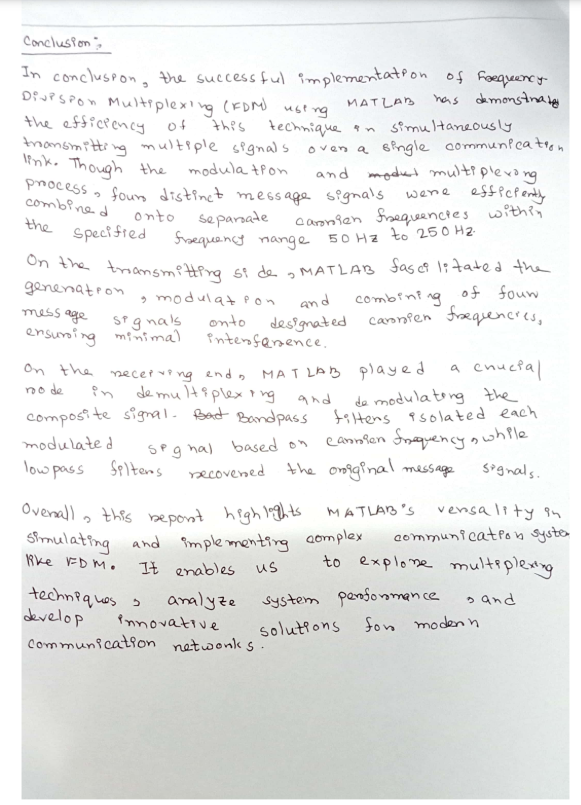 Conclusion:
In conclusion, the successful implementation of Frequency
Division Multiplexing (FDM) using MATLAB has demonstrated
the efficiency of this technique in simultaneously
transmitting multiple signals over a single communication
link. Though the modulation and multiplexing
process, four distinct message signals were efficiently
combined onto separate carrier frequencies within
the specified frequency range 50 Hz to 250 Hz.
On the transmitting side, MATLAB fascilitated the
generation, modulation and combining of four
message signals onto designated carrier frequencies,
ensuring minimal interference.
On the receiving end, MATLAB played a crucial
rode in demultiplexing and demodulating the
composite signal. Bandpass filters isolated each
modulated signal based on carrier frequency, while
lowpass filters recovered the original message signals.
Overall, this report highlights MATLAB's versality in
simulating and implementing complex communication system
like FDM. It enables us to explore multiplexing
techniques, analyze system performance, and
develop innovative solutions for modern
communication networks.